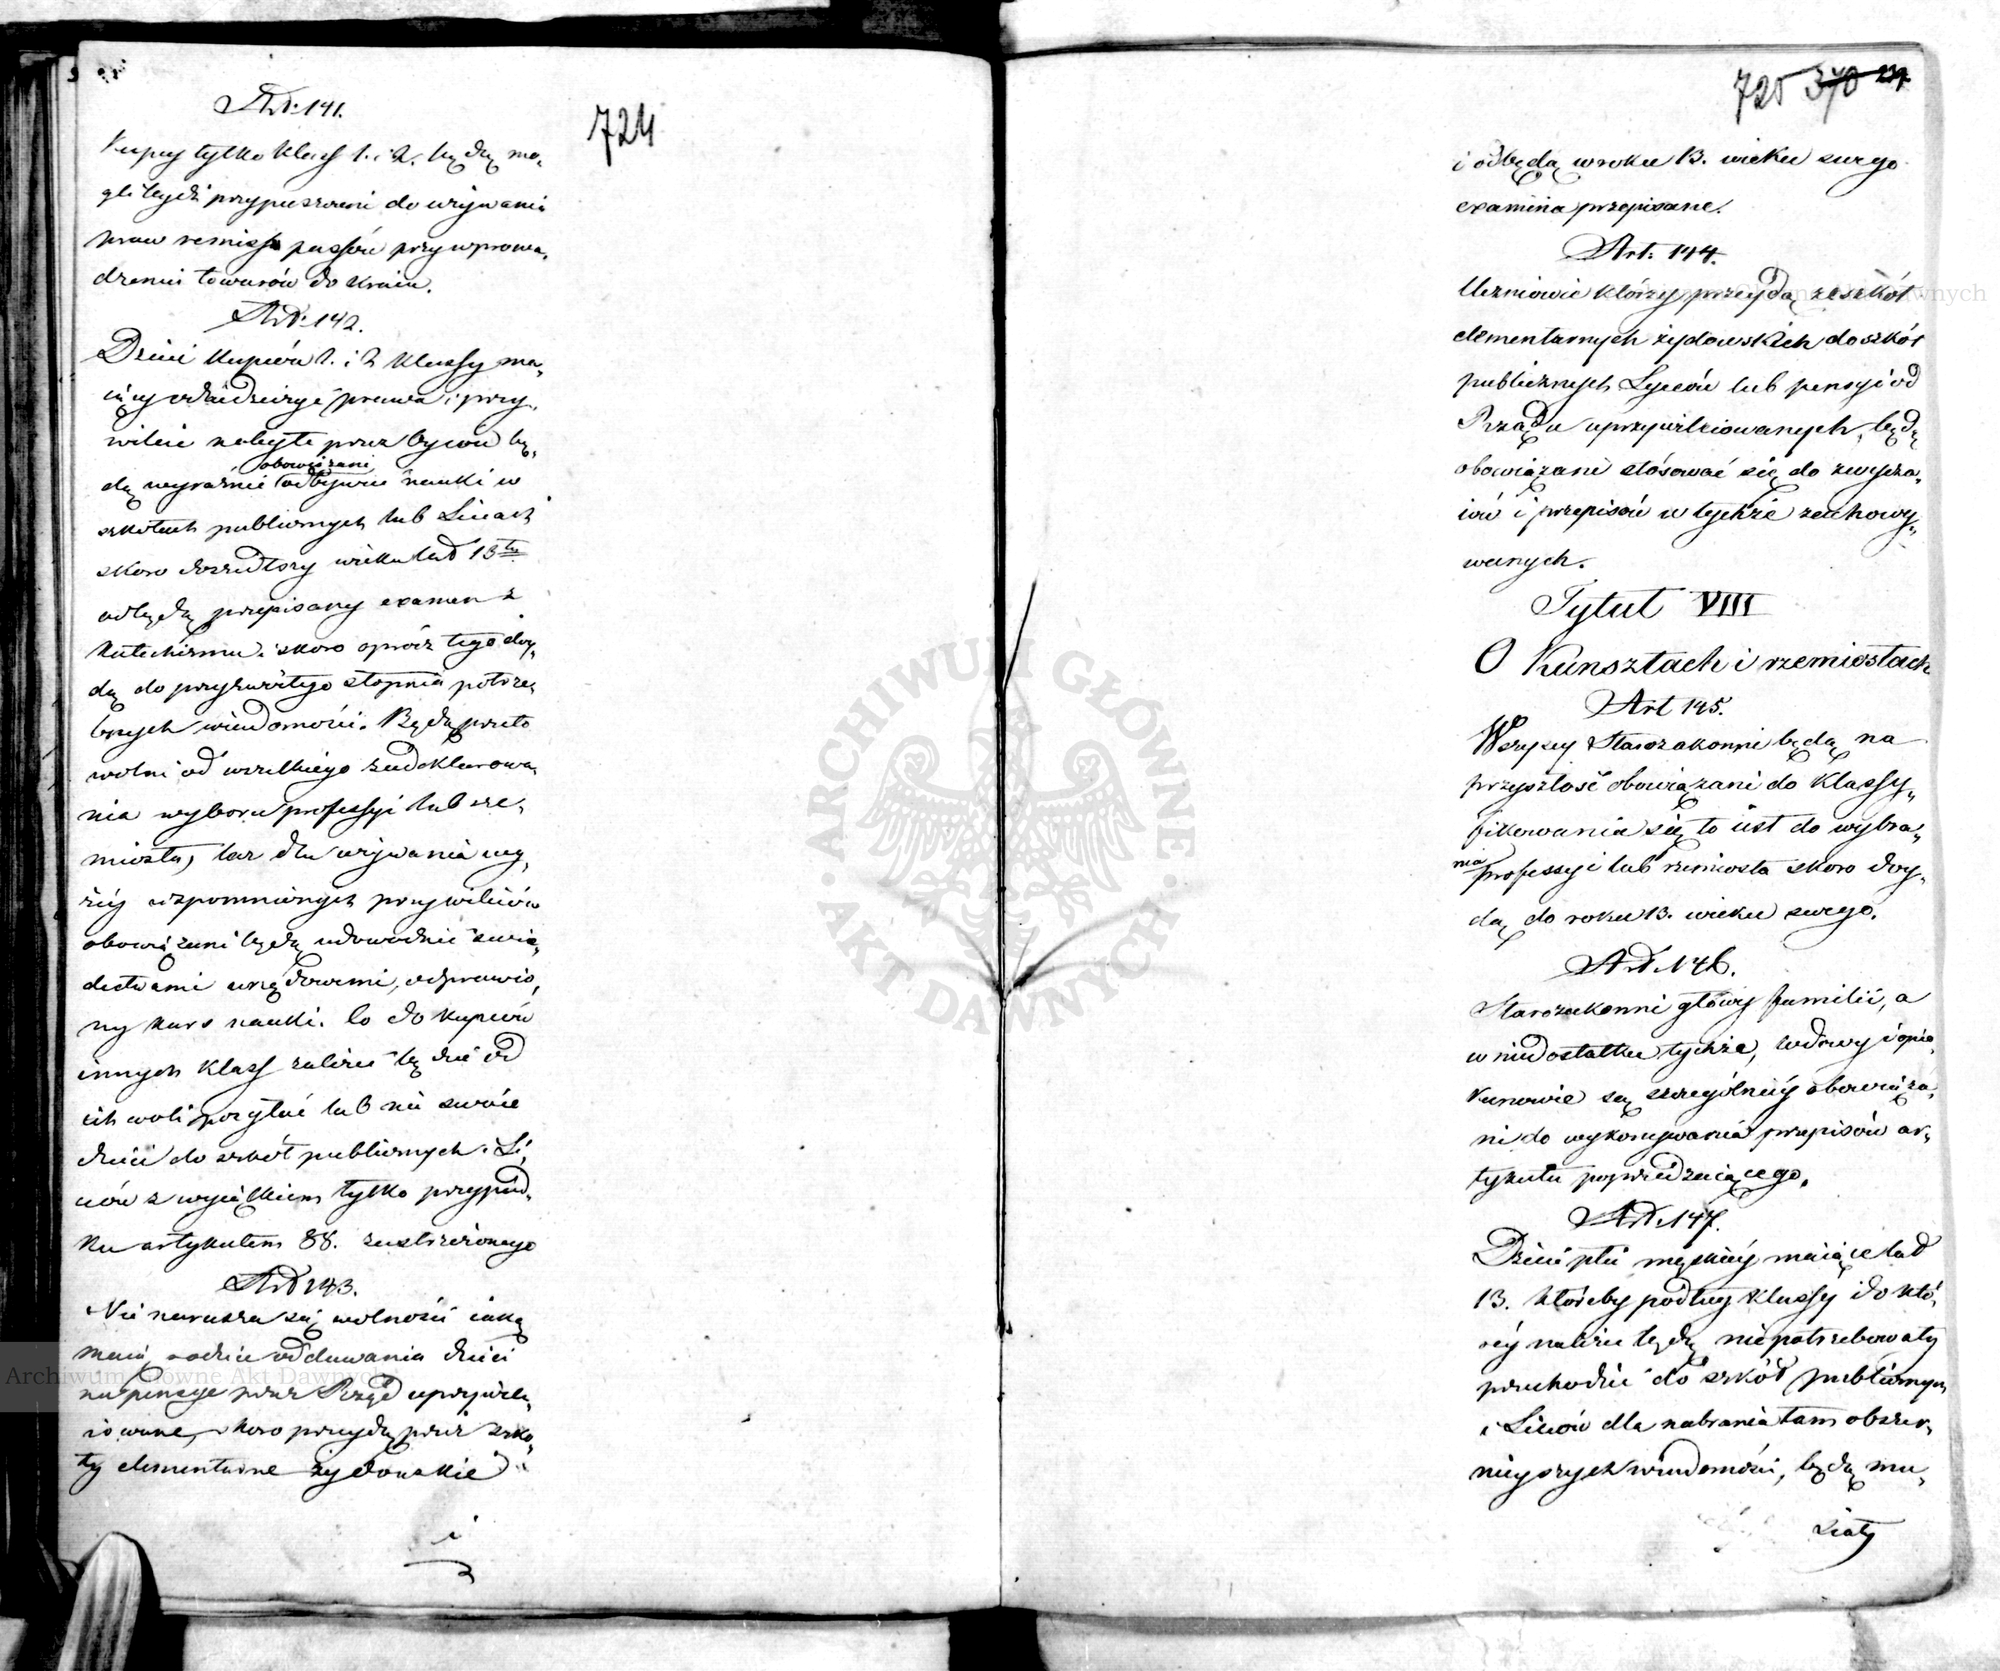 724
Art. 141.
Kupcy tylko klass 1. i 2. będą mo„
gli bydź przypuszczeni do używania
praw remiss passów przy wprowa„
dzeniu towarów do kraiu.
Art. 142.
Dzieci kupców 1. i 2 klassy ma„
iący odziedziczyć prawa i przy„
wileie nabyte przez oyców bę„
dą wyraźnie obowiązani odbywać nauki w
szkołach publicznych lub Liceach
skoro doszedłszy wieku lat 13tu
odbędą przepisany examen z
katechizmu i skoro oprócz tego doy„
dą do przyzwoitego stopnia potrze„
bnych wiadomości. Będą przeto
wolni od wszelkiego zadeklarowa„
nia wyboru professyi lub rze„
miosła, lecz dla używania wy„
żéy wspomnionych przywileiów
obowiązani będą udowodnić świa„
dectwami urzędowemi, odprawio„
ny kurs nauki. Co do kupców
innych klass zależeć będzie od
ich woli posyłać lub nie swoie
dzieci do szkół publicznych i Li„
ceów z wyiątkiem tylko przypad„
ku artykułem 88. zastrzeżonego
Art 143.
Nie narusza się wolność iaką
maią rodzice oddawania dzieci
na pensye przez Rząd uprzywile„
iowane, skoro przeydą przez szko„
ły elementarne żydowskie
i
725 370 237.
i odbędą w roku 13. wieku swego
examina przepisane.
Art: 144.
Uczniowie którzy przeydą ze szkół
elementarnych żydowskich do szkół
publicznych Lyceów lub pensyi od
Rządu uprzywileiowanych, będą
obowiązani stósować się do zwycza„
iów i przepisów w tychże zachowy„
wanych.
Tytuł VIII
O Kunsztach i rzemiosłach
Art 145.
Wszyscy Starozakonni będą na
przyszłość obowiązani do klassy„
fikowania się to iest do wybra„
nia professyi lub rzemiosła skoro doy„
dą do roku 13. wieku swego.
Art. 146.
Starozakonni głowy familii, a
w niedostatku tychże, wdowy i opie„
kunowie są szczególniéy obowiąza„
ni do wykonywania przepisów ar„
tykułu poprzedzaiącego.
Art. 147.
Dzieci płci męskiéy maiące lat
13. któreby podług klassy do któ„
réy należeć będą nie potrzebowały
przechodzić do szkół publicznych
i Liceów dla nabrania tam obszer„
nieyszych wiadomości, będą mu„
siały
Archiwum Główne Akt Dawnych
ARCHIWUM GŁÓWNE AKT DAWNYCH